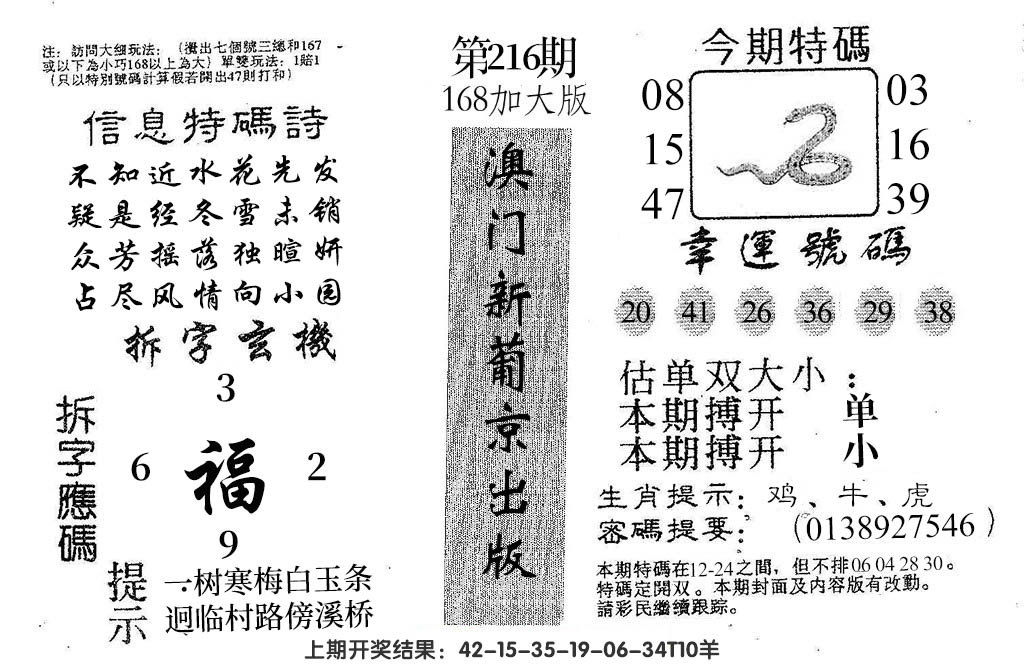 注：訪問大細玩法：（攪出七個號三總和167
或以下為小巧168以上為大）單雙玩法：1賠1
（只以特別號碼計算假若開出47則打和）
信息特碼詩
不知近水花先发
疑是经冬雪未销
众芳摇落独暄妍
占尽风情向小园
拆字玄機
3
拆字應碼
6 福 2
9
提示
一树寒梅白玉条
迥临村路傍溪桥
第216期
168加大版
澳门新葡京出版
今期特碼
08 03
15 16
47 39
幸運號碼
20 41 26 36 29 38
估单双大小：
本期搏开 单
本期搏开 小
生肖提示：鸡、牛、虎
密碼提要：（0138927546）
本期特碼在12-24之間，但不排06 04 28 30。
特碼定開双。本期封面及内容版有改動。
請彩民繼續跟踪。
上期开奖结果：42-15-35-19-06-34T10羊